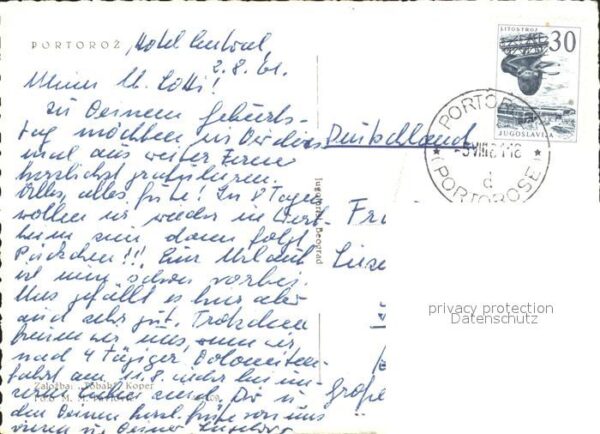 PORTOROŽ Hotel Central,
2.8.61.
Meine lb. Lotti!
Zu Deinem Geburts-
tag möchten wir Dir dies-
mal aus weiter Ferne
herzlichst gratulieren.
Alles, alles gute! In 8 Tagen
wollen wir wieder in
heim sein dann folgt
Päckchen!!! Ein Urlaub
ist nun schon vorbei.
Uns gefällt es hier aber
auch sehr gut. Trotzdem
freuen wir uns, wenn wir
nach 4 tägiger Dolomiten-
fahrt am 11.8. wieder bei
Dir u.
den Deinen herzl. grüße von uns
Deutschland
Fr
Luise
Große
Jugoslavija Beograd
Založba: „Lipa" Koper
LITOSTROJ
30
JUGOSLAVIJA
PORTOROŽ
PORTOROSE
d
privacy protection
Datenschutz